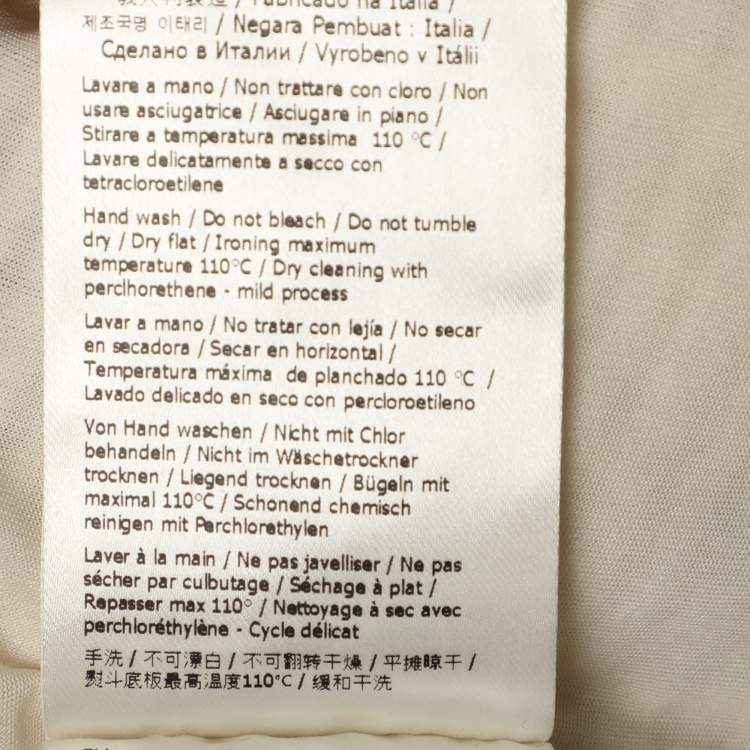 Fabricado na Itália /
제조국명 이태리 / Negara Pembuat : Italia /
Сделано в Италии / Vyrobeno v Itálii
Lavare a mano / Non trattare con cloro / Non
usare asciugatrice / Asciugare in piano /
Stirare a temperatura massima 110 °C /
Lavare delicatamente a secco con
tetracloroetilene
Hand wash / Do not bleach / Do not tumble
dry / Dry flat / Ironing maximum
temperature 110°C / Dry cleaning with
perclhorethene - mild process
Lavar a mano / No tratar con lejía / No secar
en secadora / Secar en horizontal /
Temperatura máxima de planchado 110 °C /
Lavado delicado en seco con percloroetileno
Von Hand waschen / Nicht mit Chlor
behandeln / Nicht im Wäschetrockner
trocknen / Liegend trocknen / Bügeln mit
maximal 110°C / Schonend chemisch
reinigen mit Perchlorethylen
Laver à la main / Ne pas javelliser / Ne pas
sécher par culbutage / Séchage à plat /
Repasser max 110° / Nettoyage à sec avec
perchloréthylène - Cycle délicat
手洗 / 不可漂白 / 不可翻转干燥 / 平摊晾干 /
熨斗底板最高温度110°C / 缓和干洗